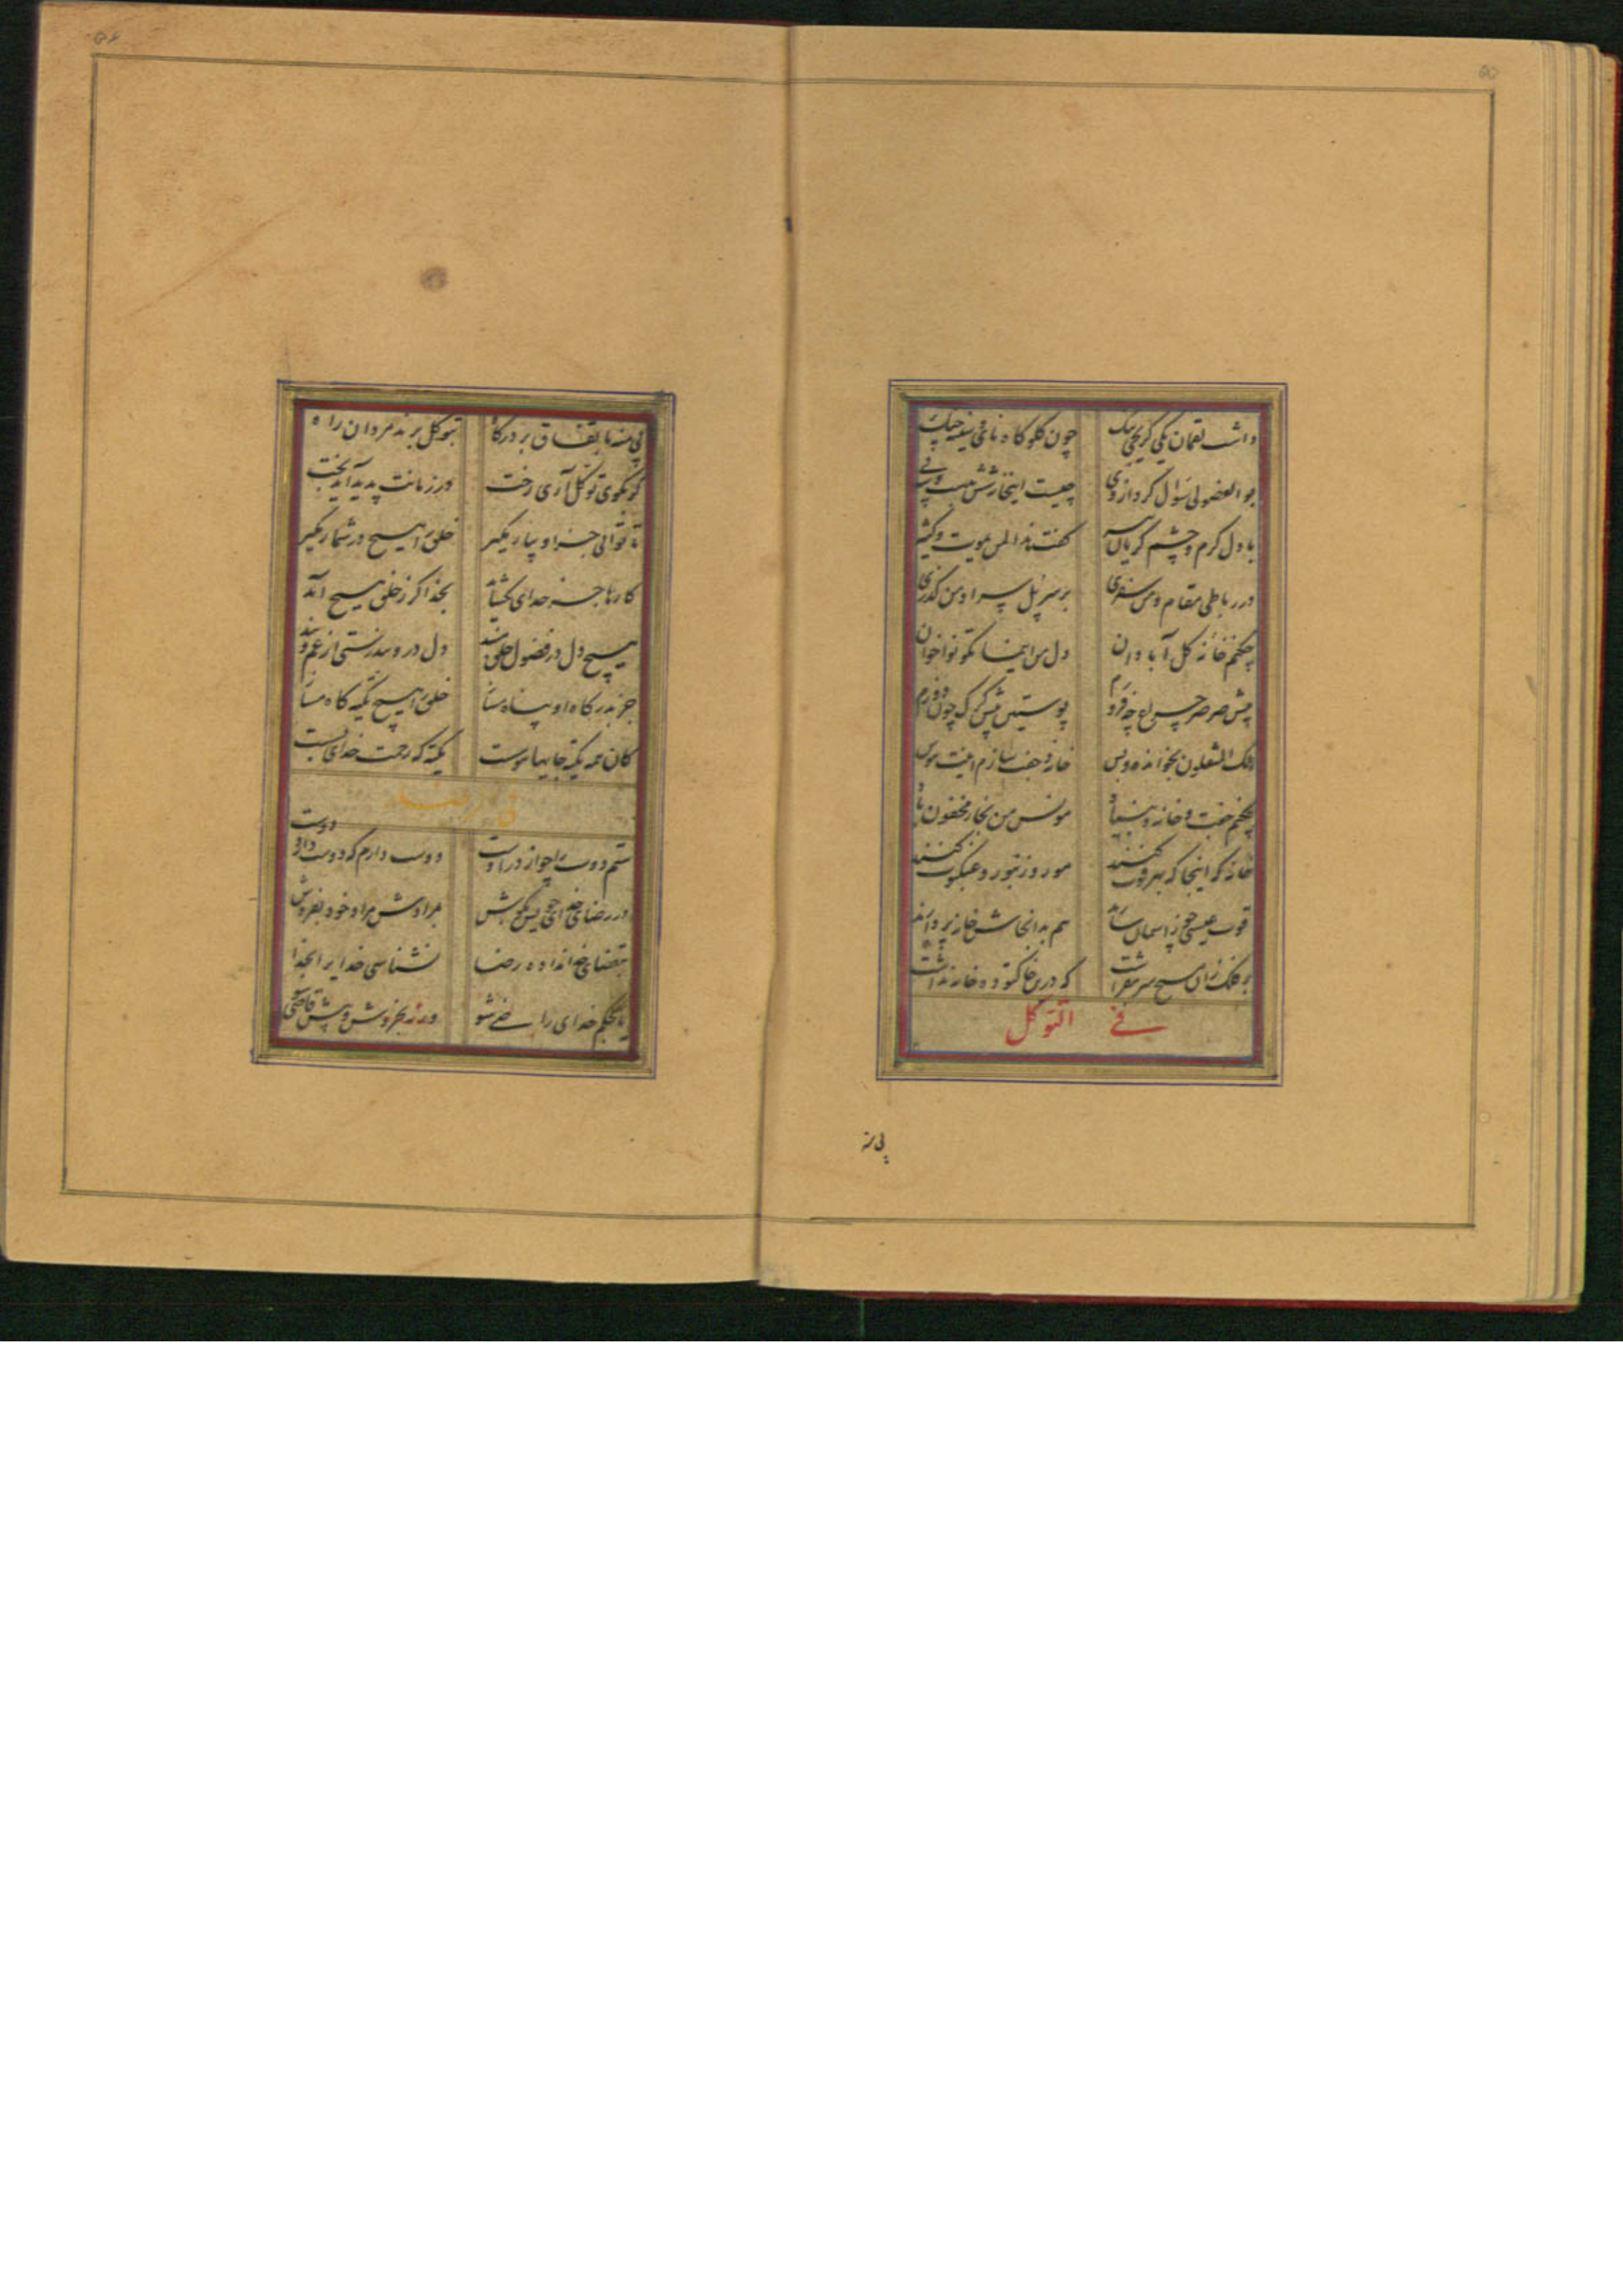 داشت لقمان یکی کریچی تنک چون کلوکاه نای و سینه چنک
بو الفضولی سوال کرد از وی چیست این خانه شش بدست و سه پی
با دل کرم و چشم کریان پیر گفت هذا لمن یموت کثیر
در رباطی مقام و من سفری بر سر پل سرا و من کذری
چکنم خانه کل آبادان دل من اینما تکونوا خوان
پیش صرصر چراغ چه فروزم پوستین پیش کرک چون دوزم
هلک المثقلون بخوانده و بس خانه و جفت سازم اینت هوس
چکنم جفت و خانه و بنیاد مونس من نجا المخفون باد
خانه کر اینجا که بهر قوت کنند مور و زنبور و عنکبوت کنند
قوت عیسی چو ز اسمان سازند هم بدانجاش خانه پردازند
بر فلک زان مسیح سر بفراشت که درین خاکتوده خانه نداشت
فی التوکل
پی منه
پی منه با نفاق بر درکاه بتوکل برند مردان راه
کر بکوی توکل آری رخت در زمانت پدید آید بخت
تا توانی جز او بیار مکیر خلق را هیچ در شمار مکیر
کارها جز خدای نکشاید بخدا کر ز خلق هیچ آید
هیچ دل در فضول خلق مبند دل درو بند رستی از غم و بند
جز بدرکاه او پناه مساز خلق را هیچ تکیه کاه مساز
کان همه تکیه جایها هوست تکیه که رحمت خدای بست
فی رضا
ستم دوست را چو از در اوست دوست دارم که دوست دارد دوست
در رضای خدای خویش بکوش بمرادش مراد خود بفروش
بقضای خدا نداده رضا نشناسی خدایرا بخدا
یا بحکم خدای راضی شو ورنه بخروش و پیش قاضی شو